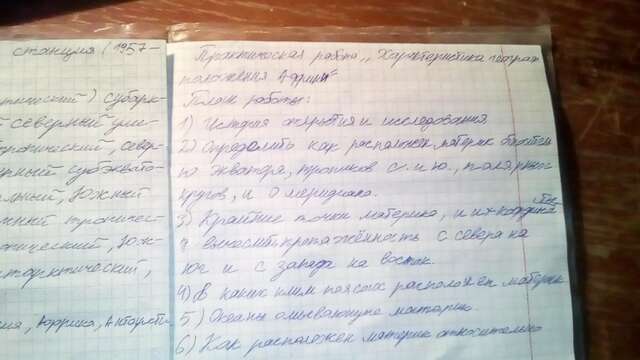 станция (1957-
тийский) субарк-
северный уме-
тропический, север-
ный субэквато-
льный, Южный
жный тропичес-
ический, Юж-
тарктический,
Африка, Антаркти
Практическая работа „Характеристика географ
положения Африки"
План работы:
1) История открытия и исследования
2) Определить как расположен материк относител
но экватора, тропиков с. и ю., полярных
кругов, и 0 меридиана.
3) Крайние точки материка, и их координа
протяжённость с севера на
юг и с запада на восток.
4) В каких клим поясах расположен материк
5) Океаны омывающие материк.
6) Как расположен материк относительно